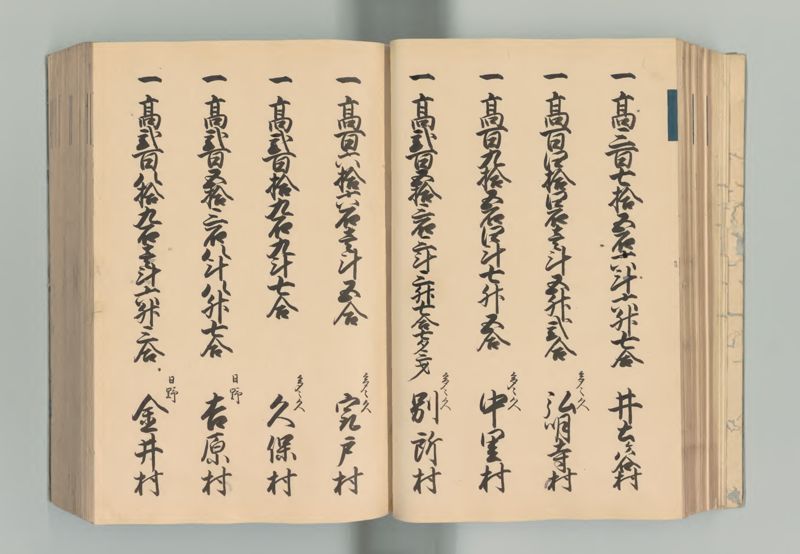 一 高三百七拾五石六斗六升七合 井土ヶ谷村
一 高百四拾四石壱斗五升弐合 多々久 弘明寺村
一 高百九拾五石四斗七升五合 多々久 中里村
一 高弐百五拾三石三斗三升七合 多々久 別所村
一 高百六拾六石壱斗五合 多々久 㝡戸村
一 高弐百拾九石九斗七合 多々久 久保村
一 高弐百五拾三石八斗八升七合 日野 吉原村
一 高弐百八拾九石壱斗六升三合 日野 金井村